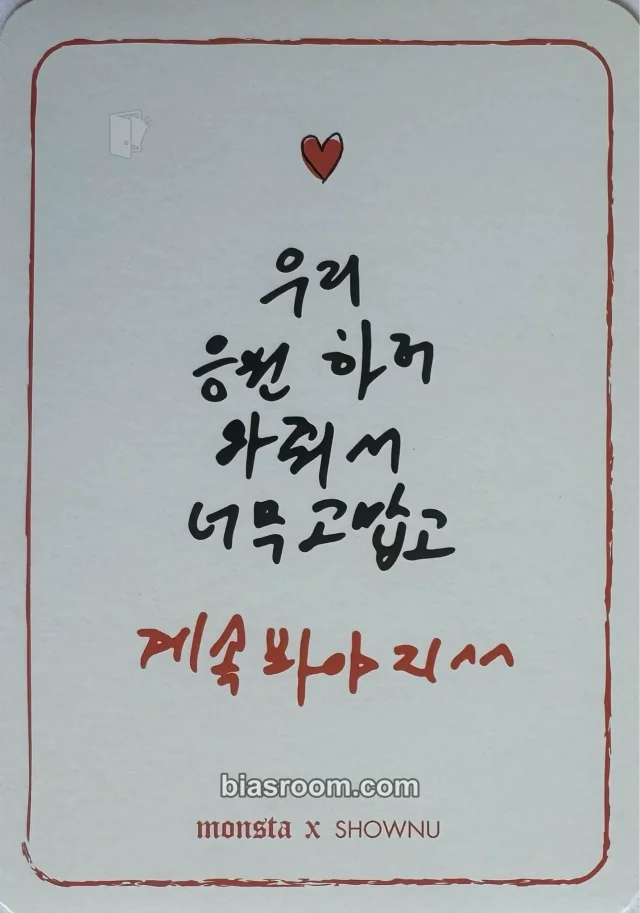 우리
응원 하러
와줘서
너무 고맙고
계속 봐야지^^
biasroom.com
monsta x SHOWNU